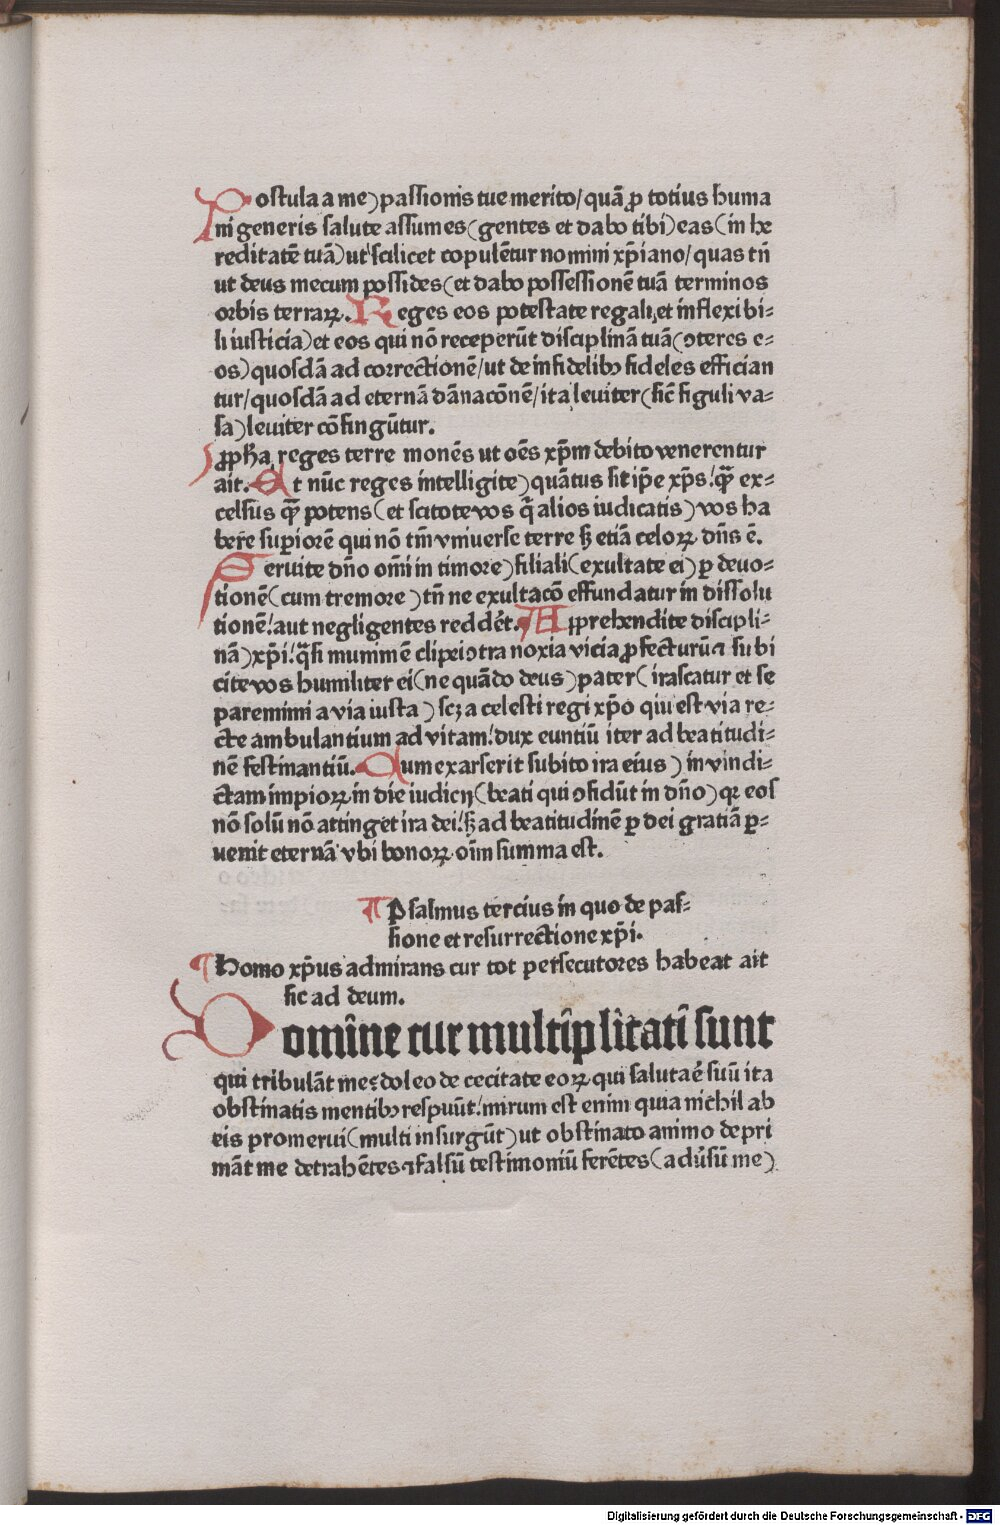 Postula a me) passionis tue merito/ quā ꝓ totius huma
ni generis salute assumes (gentes et dabo tibi) eas (in he
reditatē tuā) ut scilicet copulētur nomini xp̄iano/ quas tn̄
ut deus mecum possides (et dabo possessionē tuā terminos
orbis terraꝝ. Reges eos potestate regali, et inflexibi⸗
li iusticia) et eos qui nō receperūt disciplinā tuā (ꝯteres e⸗
os) quosdā ad correctionē/ ut de infidelibꝫ fideles effician
tur/ quosdā ad eternā dānacōnē/ ita leuiter (sic̄ figuli va⸗
sa) leuiter cōfingūtur.
ꝓpħa reges terre monēs ut oēs xp̄m debito venerentur
ait. Et nūc reges intelligite) quātus sit ip̄e xp̄s! qꝫ ex⸗
celsus qꝫ potens (et scitote vos q̄ alios iudicatis) vos ha
bere superiorē qui nō tm̄ vniuerse terre sꝫ etiā celoꝝ dn̄s ē.
Seruite dn̄o om̄i in timore) filiali (exultate ei) ꝑ deuo⸗
tionē (cum tremore) tn̄ ne exultacō effundatur in dissolu
tionē! aut negligentes reddēt. Apprehendite discipli⸗
nā) xp̄i! q̄si munimē clipei ꝯtra noxia vicia ꝓfecturū ⁊ subi
cite vos humiliter ei (ne quādo deus) pater (irascatur et se
paremini a via iusta) scꝫ a celesti regi xp̄o qui est via re⸗
cte ambulantium ad vitam! dux euntiū iter ad beatitudi⸗
nē festinantiū. Cum exarserit subito ira eius) in vindi⸗
ctam impioꝝ in die iudicij (beati qui ꝯfidūt in dn̄o) qꝛ eos
nō solū nō attinget ira dei! sꝫ ad beatitudinē ꝑ dei gratiā ꝑ⸗
uenit eternā vbi bonoꝝ oīm summa est.
¶ Psalmus tercius in quo de pas⸗
sione et resurrectione xp̄i.
¶ Homo xp̄us admirans cur tot persecutores habeat ait
sic ad deum.
Domine cur multiplicati sunt
qui tribulāt me: doleo de cecitate eoꝝ qui salutaē suū ita
obstinatis mentibꝫ respuūt! mirum est enim quia nichil ab
eis promerui (multi insurgūt) ut obstinato animo depri
māt me detrahētes ⁊ falsū testimoniū ferētes (adu̾sū me)
Digitalisierung gefördert durch die Deutsche Forschungsgemeinschaft - DFG